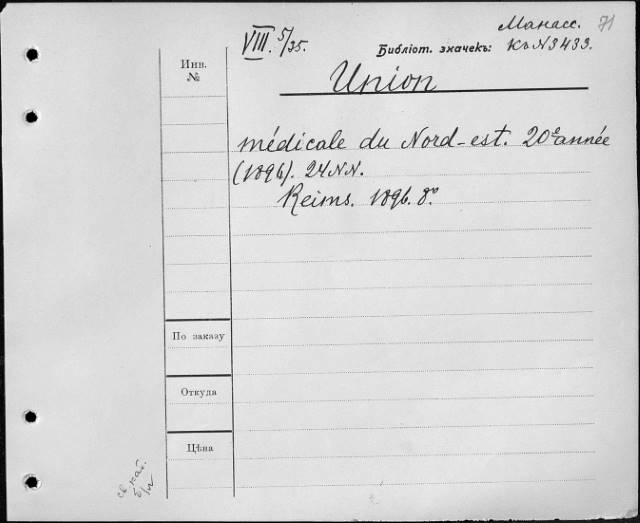 Манасс. 71
VIII. 5/35. Библіот. значекъ: Къ N 3433.
Инв.
№
Union
médicale du Nord-est. 20e année
(1896). 24 NN.
Reims. 1896. 8°.
По заказу
Откуда
Цѣна